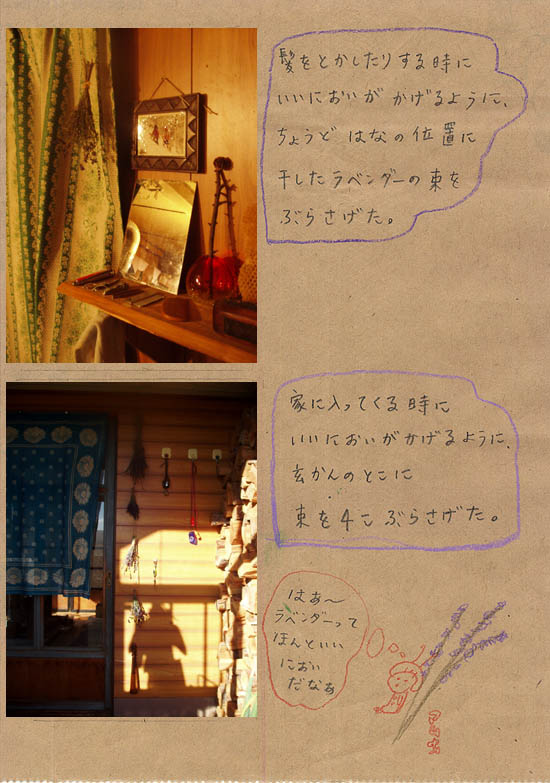 髪をとかしたりする時に
いいにおいが かげるように、
ちょうど はなの位置に
干したラベンダーの束を
ぶらさげた。
家に入ってくる時に
いいにおいがかげるように、
玄かんのとこに
束を4こ ぶらさげた。
はぁ〜
ラベンダーって
ほんといい
におい
だなぁ